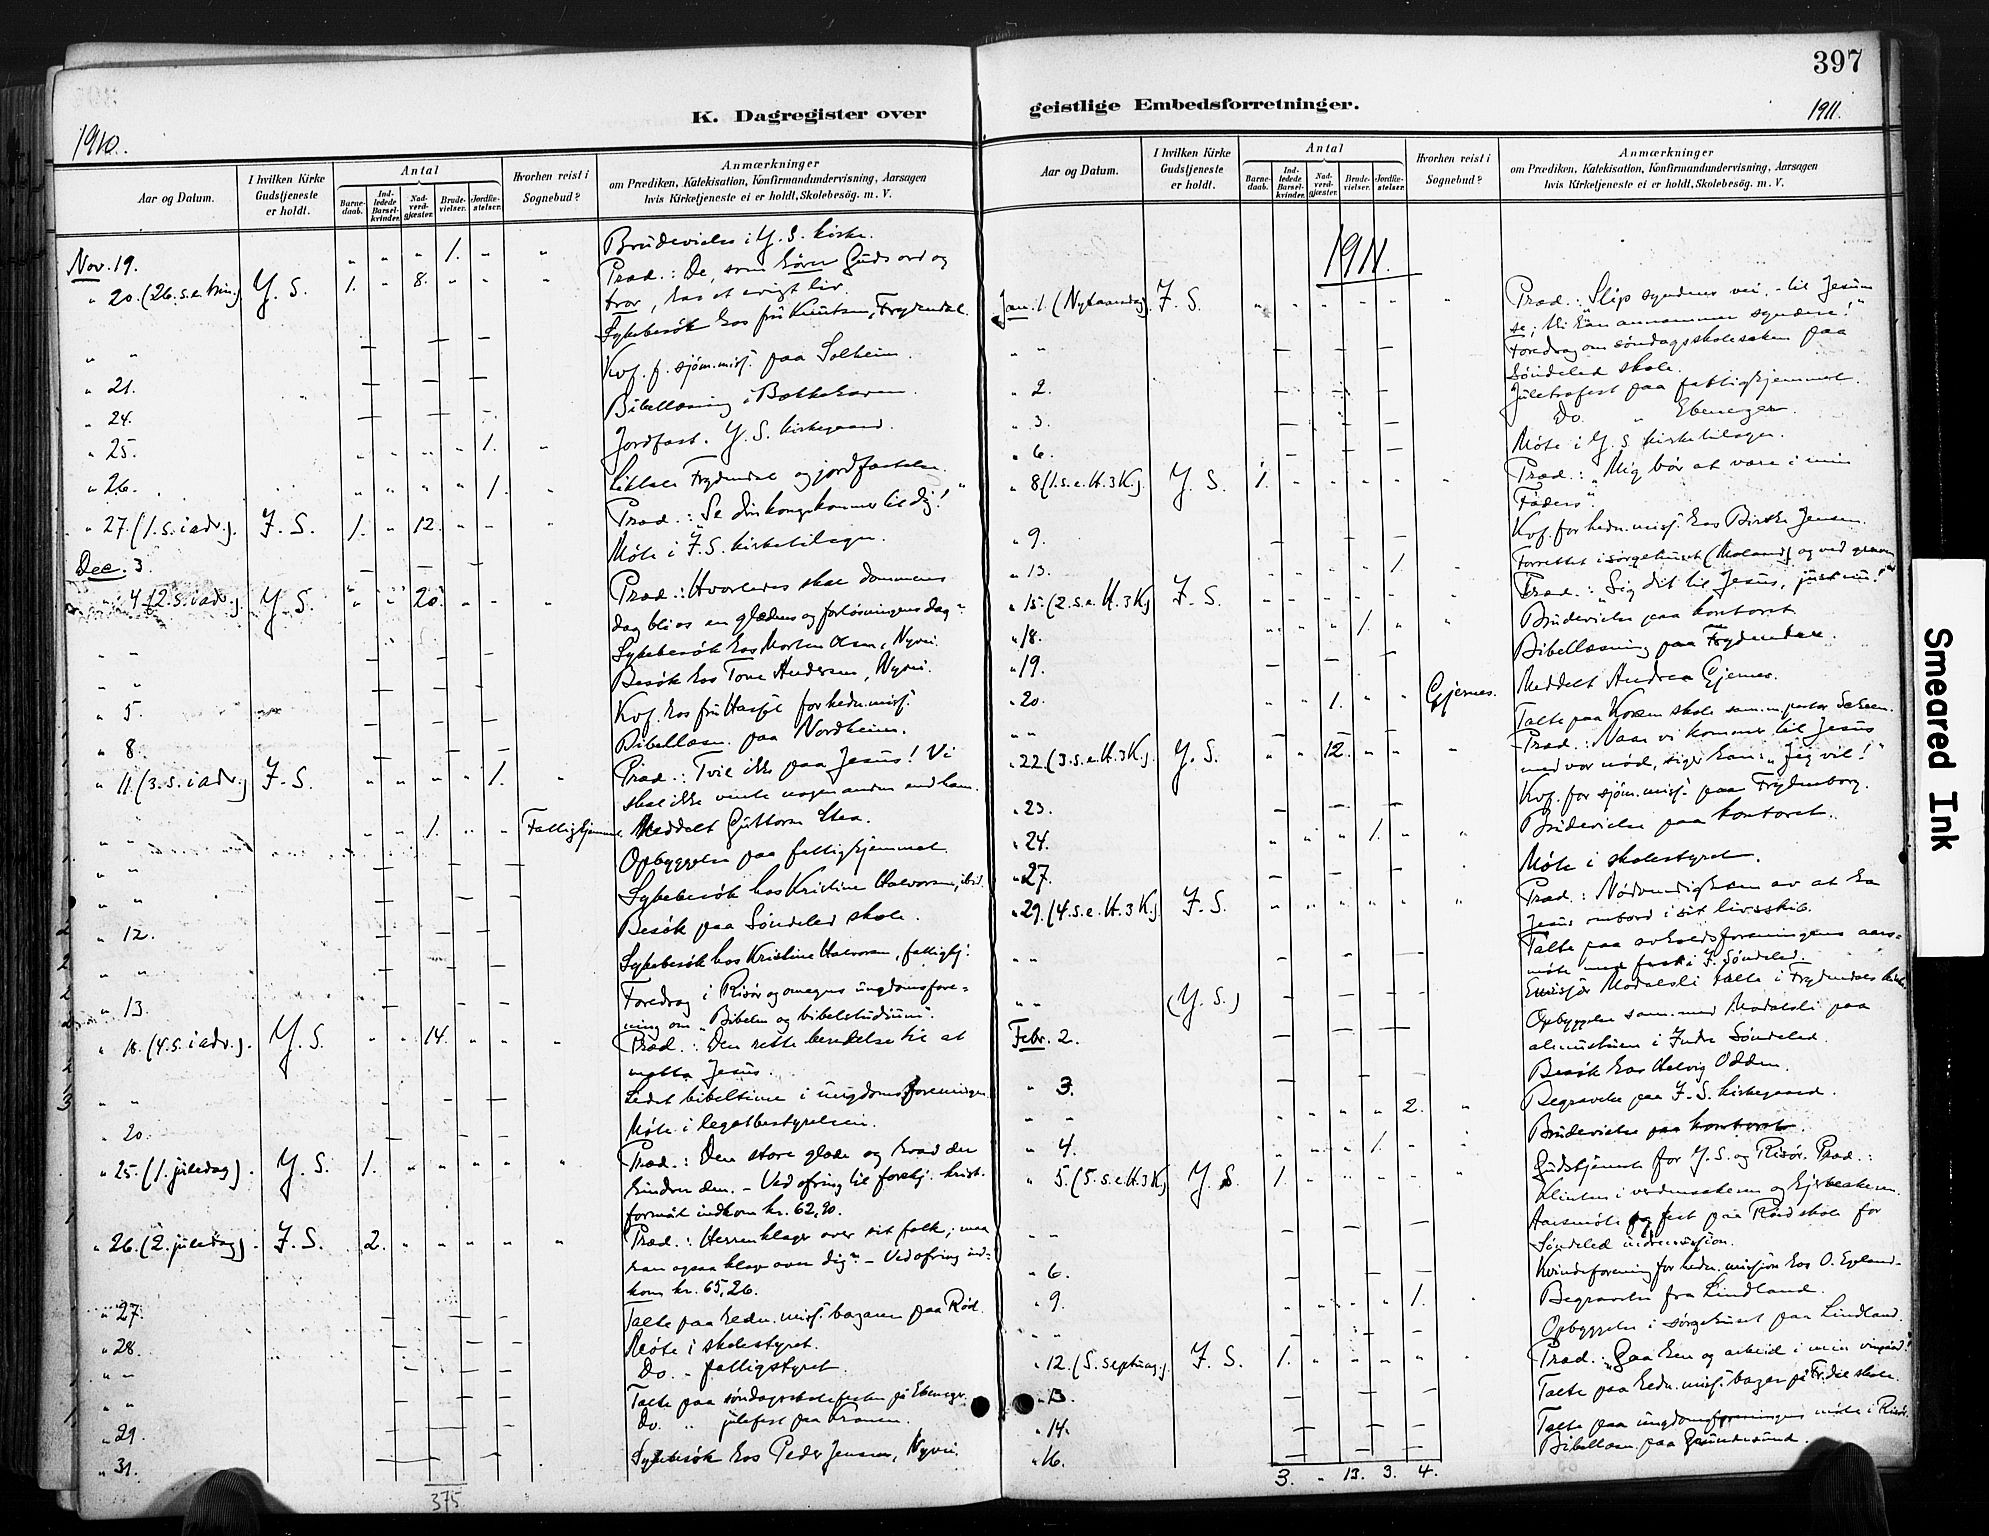 397
K. Dagregister over geistlige Embedsforretninger.
1910.
1911.
Aar og Datum.
I hvilken Kirke Gudstjeneste er holdt.
Antal
Barnedaab.
Indledede Barselkvinder.
Nadverdgjester.
Brudevielser.
Jordfæstelser.
Hvorhen reist i Sognebud?
Anmærkninger
om Prædiken, Katekisation, Konfirmandundervisning, Aarsagen
hvis Kirketjeneste ei er holdt, Skolebesøg. m. V.
Nov. 19. " " " 1. " " Brudevielse i Y. S. kirke.
" 20. (26. s. e. trin.) Y. S. 1. " 8. " " Præd.: De, som hører Guds ord og
tror, har et evigt liv.
" " Sykebesøk hos fru Knutsen, Frydendal.
" 21. Kvf. f. sjøm.misj. paa Solheim.
" 24. Bibellæsning i Bakkehaven.
" 25. " " " " 1. " Jordfæst. Y. S. kirkegaard.
" 26. " " " " 1. " Frydendal og jordfæstelse.
" 27. (1. s. i adv.). F. S. 1. " 12. " " " Præd.: "Se din konge kommer til dig!"
Dec. 3. Møte i F. S. kirketilsyn.
" 4. (2. s. i adv.). Y. S. " " 20. " " " Præd.: Hvorledes skal dommens
dag bli os en glædens og forløsningens dag?
" " Sykebesøk hos Morten Olsen, Nyvei.
" " Besøk hos Tone Andersen, Nyvei.
" 5. Kvf. hos fru for hedn.misj.
" 8. Bibellæsn. paa Nordheim.
" 11. (3. s. i adv.) F. S. " " " " 1. " Præd.: Tvil ikke paa Jesus! Vi
skal ikke vente nogen anden end ham.
" " " " 1. " " Fattighjemmet. Meddelt Guttorm Stea.
" " Opbyggelse paa fattighjemmet.
" " Sykebesøk hos Kristine Halvorsen, ibid.
" 12. Besøk paa Søndeled skole.
" " Sykebesøk hos Kristine Halvorsen, fattighj.
" 13. Foredrag i Risør og omegns ungdomsfore-
ning om "Bibelen og bibelstudium".
" 18. (4. s. i adv.). Y. S. " " 14. " " " Præd.: Den rette beredelse til at
motta Jesus.
" " Ledet bibeltime i ungdomsforeningen.
" 20. Møte i legatbestyrelsen.
" 25. (1. juledag). Y. S. 1. " " " " " Præd.: Den store glæde og hvad der
hindrer den. - Ved ofring til forskj. krist.
formål indkom kr. 62,90.
" 26. (2. juledag). F. S. 2. " " " " " Præd.: Herren klager over sit folk; maa
han ogsaa klage over dig? - Ved ofring ind-
kom kr. 65,26.
" 27. Talte paa hedn.misj.basaren paa Rød.
" 28. Møte i skolestyret.
" " Do. - fattigstyret.
" " Talte paa søndagsskolefesten på Ebeneser.
" 29. Do. " julefest paa Tranen.
" 31. Sykebesøk hos Peder Jensen, Nyvei.
375
1911.
Jan. 1. (Nytaarsdag). F. S. " " " " " " Præd.: "Slip syndens vei, - til Jesum
se; thi han annammer syndere!"
" " Foredrag om søndagsskolesaken paa
Søndeled skole.
" 2. Juletræfest paa fattighjemmet.
" 3. Do. " Ebeneser.
" 6. Møte i Y. S. kirketilsyn.
" 8. (1. s. e. H. 3 K.). Y. S. 1. " " " " " Præd.: "Mig bør at være i min
Faders".
" 9. Kvf. for hedn.misj. hos Birthe Jensen.
" 13. 1. " Forrettet i sørgehuset (Moland) og ved graven
" 15. (2. s. e. H. 3 K.) F. S. " " " " " " Præd.: "Sig dit til Jesus, just nu!"
" 18. " " " 1. " " Brudevielse paa kontoret
" 19. Bibellæsning paa Frydendal.
" 20. " " 1. " " Gjernes. Meddelt Andrea Gjernes.
" " Talte paa skole sam. m. pastor
" 22. (3. s. e. H. 3 K.). Y. S. " " 12. " " " Præd.: Naar vi kommer til Jesus
med vor nød, siger han: "Jeg vil!"
" 23. Kvf. for sjøm.misj. paa Frydenborg.
" 24. " " " 1. " " Brudevielse paa kontoret.
" 27. Møte i skolestyret.
" 29. (4. s. e. H. 3 K.). F. S. " " " " " " Præd.: Nødvendigheten av at ha
Jesus ombord i sit livsskib.
" " Talte paa avholdsforeningens aars-
møte med fest i F. Søndeled.
" " (Y. S.) Emisjær Modalsli talte i Frydendal kirke.
Febr. 2. Opbyggelse sam. med Modalsli paa
i Indre Søndeled.
" 3. Besøk hos Helvig Odden.
" " " " " " 2. " Begravelse paa F. S. kirkegaard.
" 4. " " " 1. " " Brudevielse paa kontoret.
" 5. (5. s. e. H. 3 K.) Y. S. 1. " " " " " Gudstjeneste for Y. S. og Risør. Præd.:
Klinten i verdensakeren og hjerteakeren.
" " Aarsmøte og fest paa Rød skole for
Søndeled indremisjon.
" 6. Kvindeforening for hedn.misjon hos O. Egeland.
" 9. " " " " 1. " Begravelse fra Lindland.
" " Opbyggelse i sørgehuset paa Lindland.
" 12. (S. septuag.). F. S. 1. " " " " " Præd.: "Gaa hen og arbeid i min vingård!"
" 13. Talte paa hedn.misj.basar på Fr.dal skole.
" 14. Talte paa ungdomsforeningens møte i Risør.
" 16. Bibellæsn. paa Grundesund.
3. " 13. 3. 4.
Smeared Ink